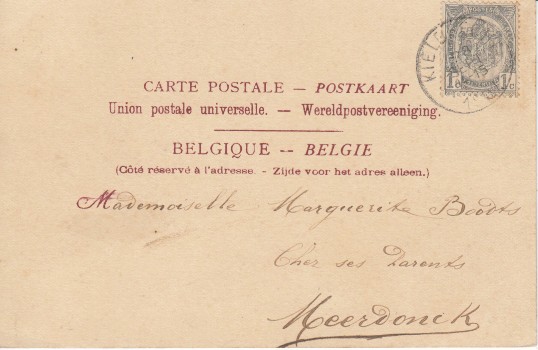 KIEL
1c 1c
CARTE POSTALE — POSTKAART
Union postale universelle. — Wereldpostvereeniging.
BELGIQUE -- BELGIE
(Côté réservé à l'adresse. - Zijde voor het adres alleen.)
Mademoiselle Marguerita Boodts
Cher ses Parents
Meerdonck